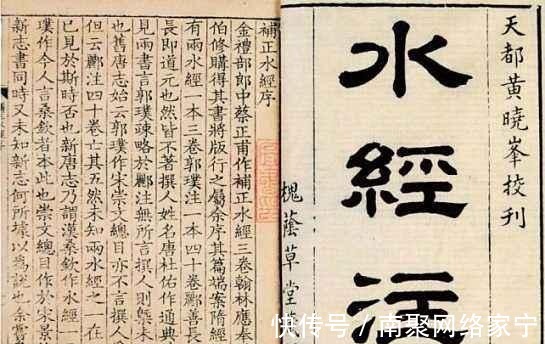 天都黃曉峯挍刊
水經注
槐蔭草堂
補正水經序
金禮部郎中蔡正甫作補正水經三卷翰林應奉
伯修購得其書將版行之屬余序其篇端案隋經
有兩水經一本三卷郭璞注一本四十卷酈善長
長即道元也然皆不著撰人姓名唐杜佑作通典
見兩書言郭璞疎略於酈注無所言撰人則槩未
也舊唐志始云郭璞作宋崇文總目亦不言撰人
但云酈注四十卷亡其五然未知兩水經之一在
已見於斯時否也新唐志乃謂漢桑欽作水經一
璞作今人言桑欽者本此也崇文總目作於宋景
新志書同時又未知新志何所據以為說也余嘗
快传号/南聚网络家宁